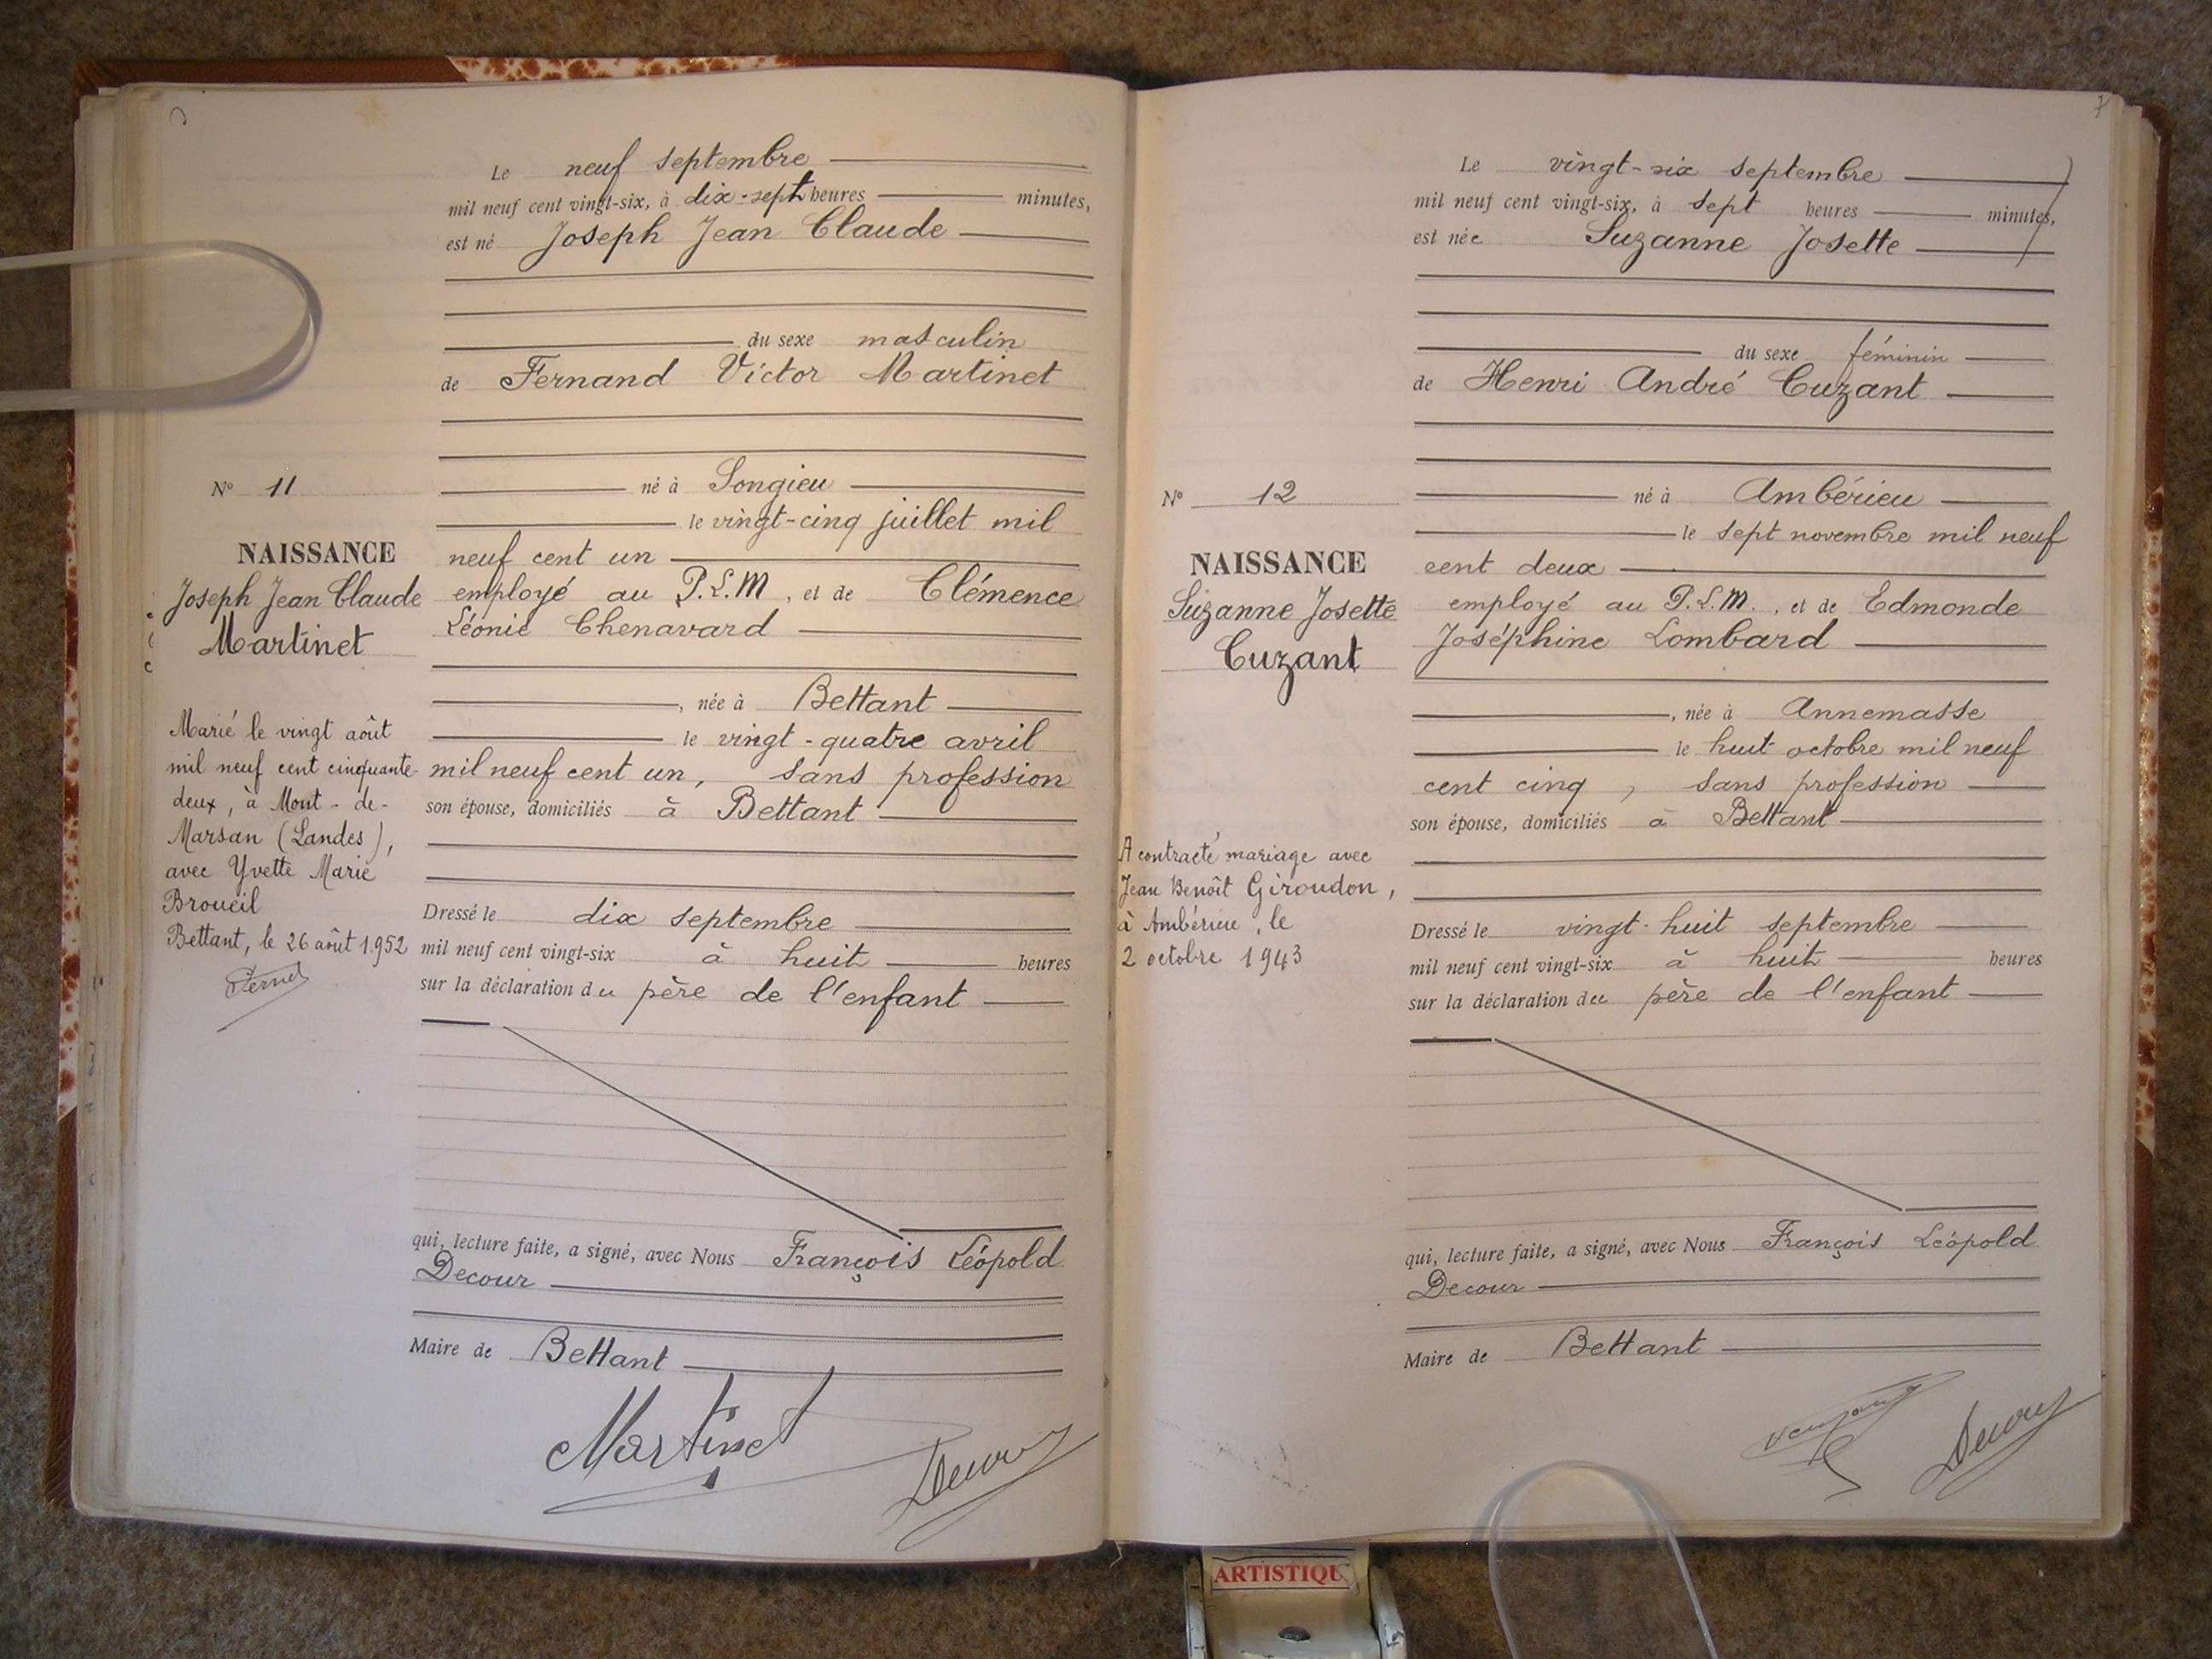 Le neuf septembre
mil neuf cent vingt-six, à dix-sept heures minutes,
est né Joseph Jean Claude
du sexe masculin
de Fernand Victor Martinet
né à Songieu
le vingt-cinq juillet mil
neuf cent un
employé au P.L.M, et de Clémence
Léonie Chenavard
, née à Bettant
le vingt-quatre avril
mil neuf cent un, sans profession
son épouse, domiciliés à Bettant
Dressé le dix septembre
mil neuf cent vingt-six à huit heures
sur la déclaration du père de l'enfant
qui, lecture faite, a signé, avec Nous François Léopold
Decour
Maire de Bettant
Martinet
Decour
N° 11
NAISSANCE
Joseph Jean Claude
Martinet
Marié le vingt août
mil neuf cent cinquante-
deux, à Mont-de-
Marsan (Landes),
avec Yvette Marie
Broueil
Bettant, le 26 août 1952
Le vingt-six septembre
mil neuf cent vingt-six, à sept heures minutes,
est née Suzanne Josette
du sexe féminin
de Henri André Cuzant
né à Ambérieu
le sept novembre mil neuf
cent deux
employé au P.L.M., et de Edmonde
Joséphine Lombard
, née à Annemasse
le huit octobre mil neuf
cent cinq, sans profession
son épouse, domiciliés à Bettant
Dressé le vingt-huit septembre
mil neuf cent vingt-six à huit heures
sur la déclaration du père de l'enfant
qui, lecture faite, a signé, avec Nous François Léopold
Decour
Maire de Bettant
Decour
N° 12
NAISSANCE
Suzanne Josette
Cuzant
A contracté mariage avec
Jean Benoît Giroudon,
à Ambérieu, le
2 octobre 1943
7
ARTISTIQU